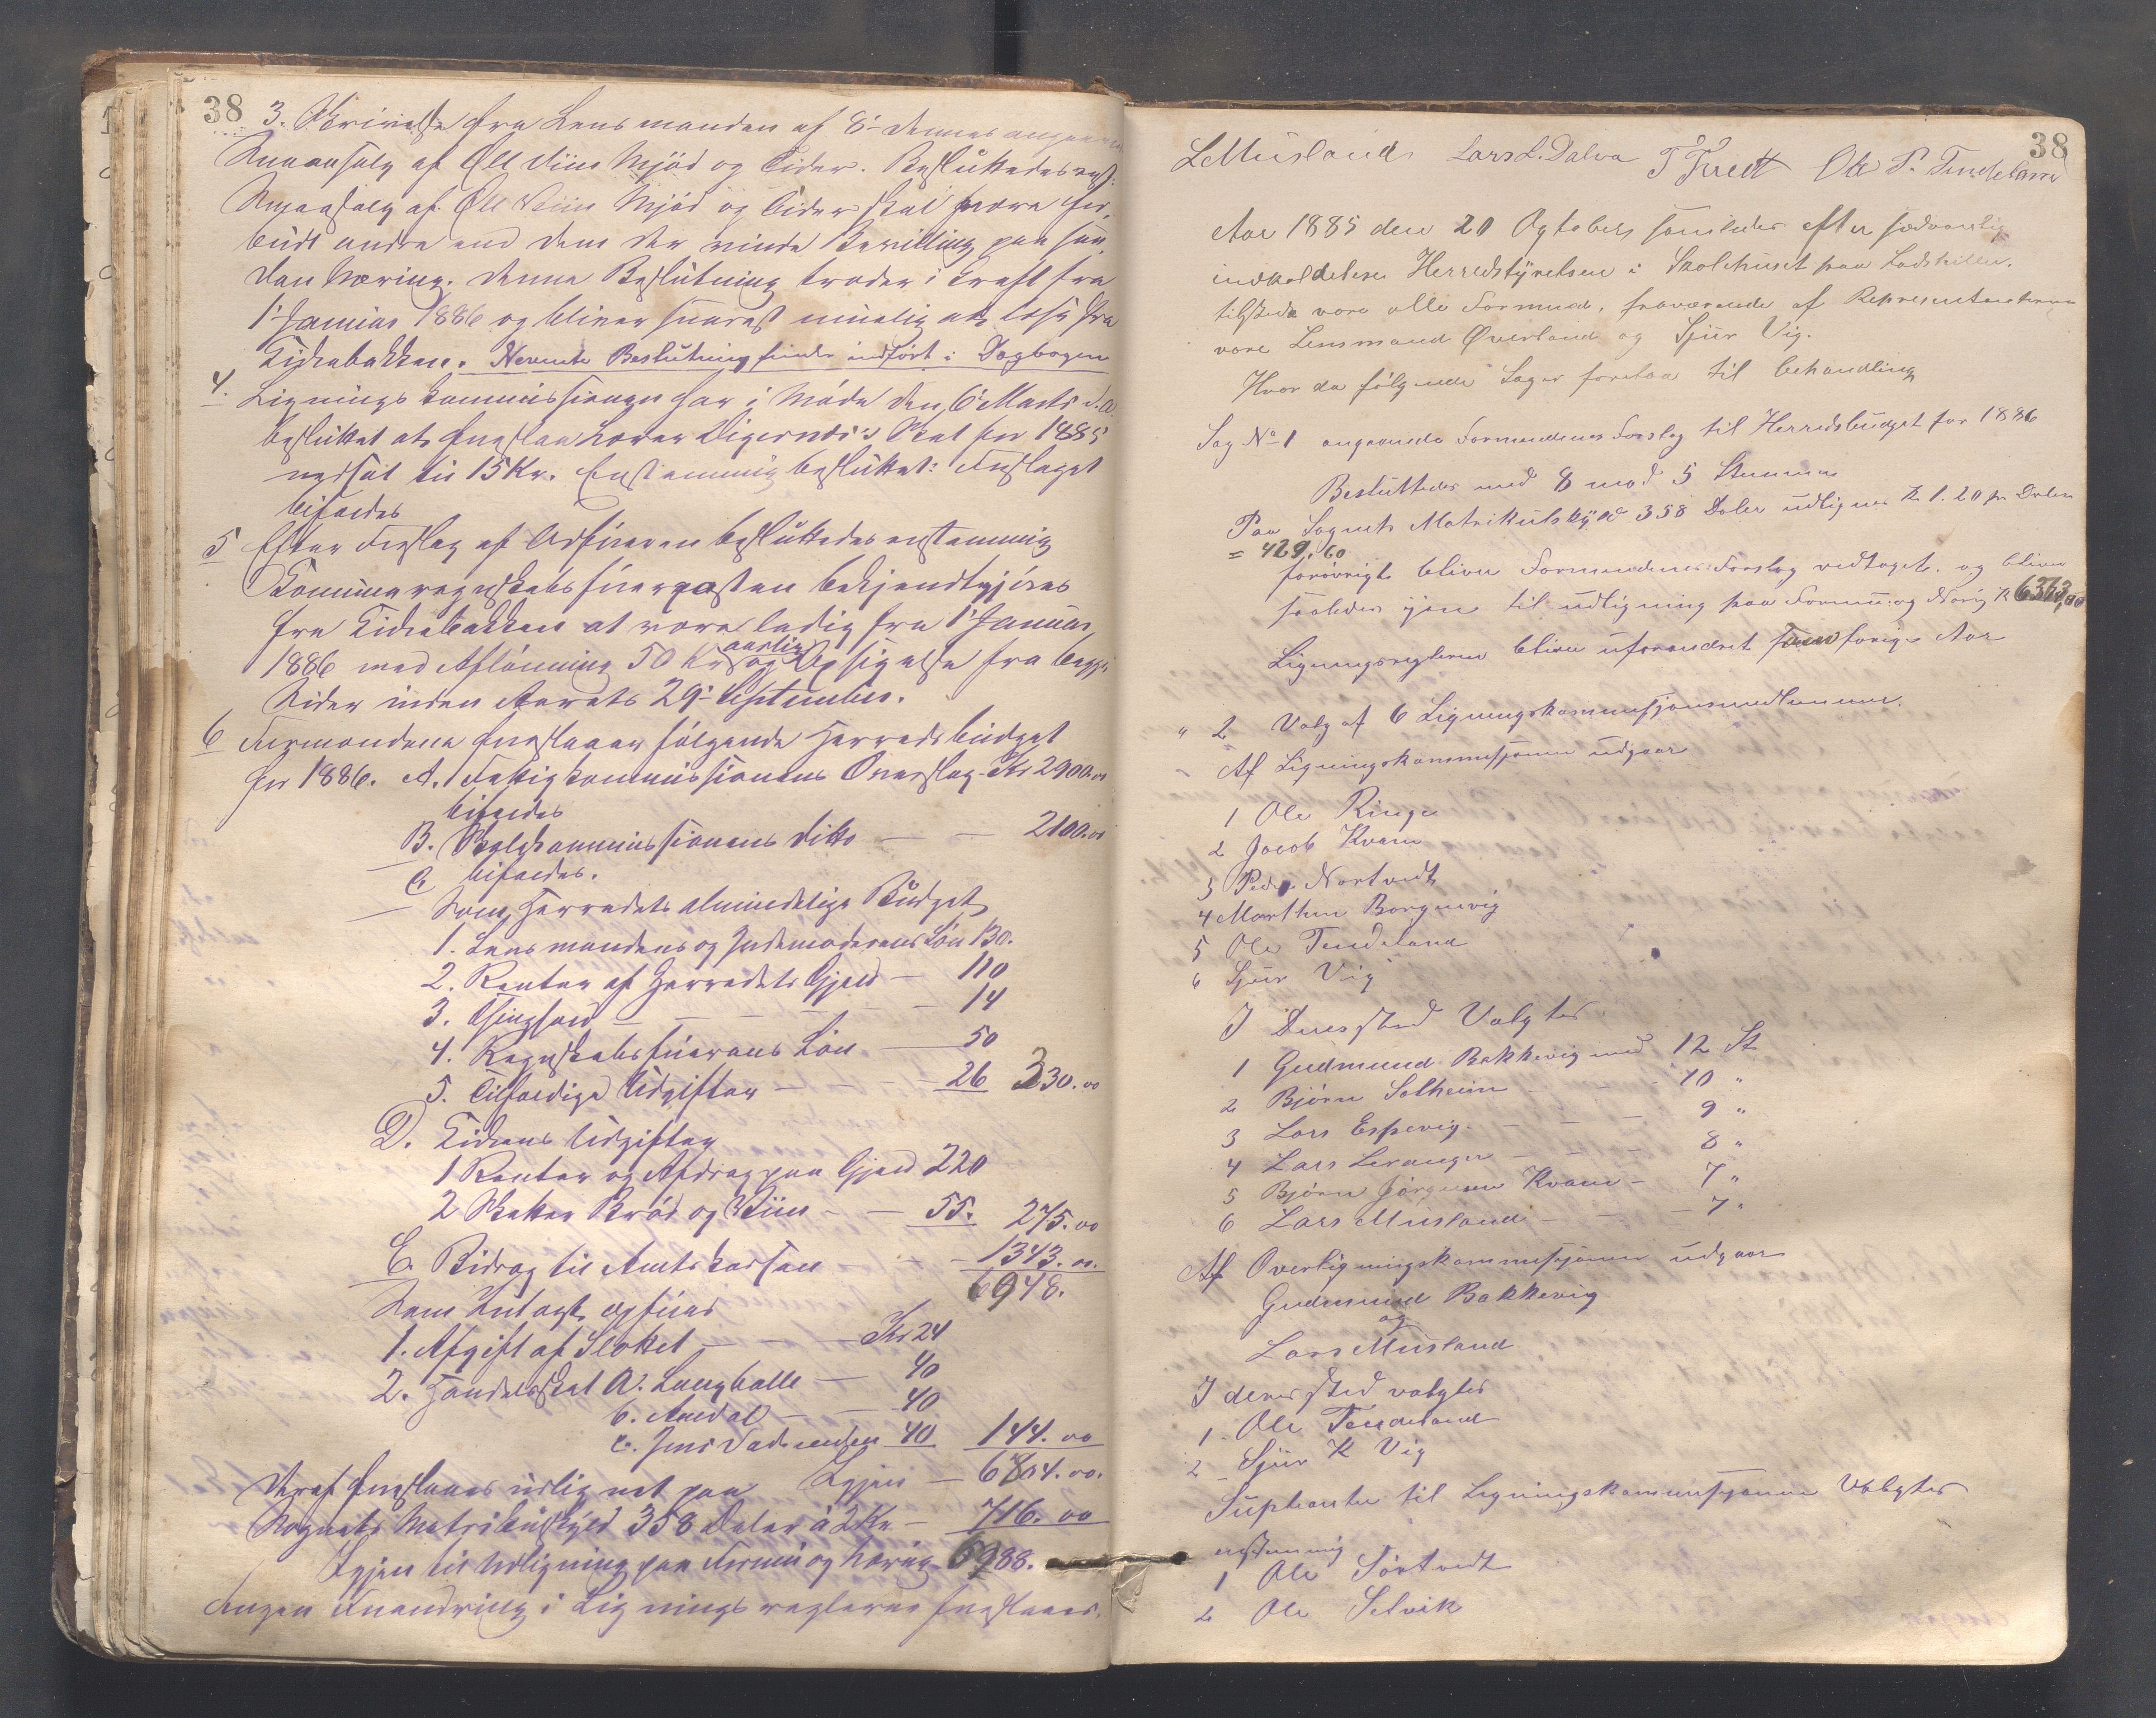 38
3. Skrivelse fra Lensmanden af 8de dennes angaaende
Smaasalg af Øll Viin Mjød og Cider. Besluttedes enst:
Smaasalg af Øll Viin Mjød og Cider skal være for-
budt andre end dem der vinde Bevilling paa saa-
dan Næring. Denne Beslutning træder i Kraft fra
1ste Januar 1886 og bliver snarest muelig at læse fra
Kirkebakken. Nevnte Beslutning findes indført i Dagbogen
4. Ligningskommissionen har i Møde den 6te Marts d.A.
besluttet at foreslaa Digernæs's Skat for 1885
nedsat til 15 Kr. Enstemmig besluttet: Forslaget
bifaldes
5 Efter Forslag af Ordføreren besluttedes enstemmig
Kommuneregnskabsførerposten bekjendtgjøres
fra Kirkebakken at være ledig fra 1ste Januar
1886 med Aflønning 50 Kr aarlig og Opsigelse fra begge
Sider inden Aarets 29de September.
6 Formændene foreslaaer følgende Herredsbudget
for 1886. A. Fattigkommissionens Overslag - Kr 2900.00
bifaldes
B. Skolekommissionens ditto — — 2100.00
bifaldes.
C
Som Herredets almindelige Budget
1. Lensmandens og Jordemoderens Løn 130.
2. Renter af Herredets Gjæld — 110
3. Thinghold — — — — — 14
4. Regnskabsførerens Løn — 50
5. Tilfældige Udgifter — — — 26 330.00
D. Kirkens Udgifter
1 Renter og Afdrag paa Gjæld 220
2 Skatter Brød og Viin — — 55. 275.00
E. Bidrag til Amtskassen — 1343.00.
6948.
Som Indtægt opføres
1. Afgift af Slottet — — Kr 24
2. Handelsskat A. Langballe — 40
b. Aredal — — 40
c. Jens Vadsenden 40 144.00
Igjen — 6804.00.
Deraf foreslaaes udlignet paa
Sognets Matrikulskyld 358 Daler à 2 Kr — 716.00
Igjen til Udligning paa Formue og Næring 6088.
Ingen Forandring i Ligningsreglerne foreslaaes.
38
L Musland Lars L. Dalva T Tvedt Ole P. Tendeland
Aar 1885 den 20 Ogtober samledes efter sædvanlig
indkaldelse Herredstyrelsen i Skolehuset paa Ladshillen.
tilstede vare alle Formænd, fraværende af Representanterne
vare Lensmand Øverland og Sjur Vig.
Hvor da følgende Sager foretoes til behandling
Sag No 1 angaaende Formændenes Forslag til Herredsbudget for 1886
Besluttedes med 8 mod 5 Stemmer
Paa Sognets Matrikulskyld 358 Daler udlignes K 1.20 pr Daler
= 429.60
forøvrigt bliver Formændenes Forslag vedtaget. og bliver
saaledes igjen til udligning paa Formue og Næring K 6373,00
Ligningsreglerne bliver uforandret som forige Aar
" 2 Valg af 6 Ligningskommissjonsmedlemmer.
Af Ligningskommissjonen udgaar
1 Ole Ringe
2 Jacob Kvam
3 Peder Nortvedt
4 Marthin Borgnevig
5 Ole Tendeland
6 Sjur Vig
I Deres sted Valgtes
1 Gudmund Bakkevig med 12 St
2 Bjørn Solheim — — 10 "
3 Lars Espevig — — — 9 "
4 Lars Levanger — — — 8 "
5 Bjørn Jørgensen Kvam — 7 "
6 Lars Musland — — — 7 "
Af Overligningskommissjonen udgaar
Gudmund Bakkevig
og
Lars Musland
I deres sted valgtes
1 Ole Tendeland
2 Sjur K Vig
Supleanter til Ligningskommissjonen Valgtes
enstemmig
1 Ole Tørtvedt
2 Ole Selvik